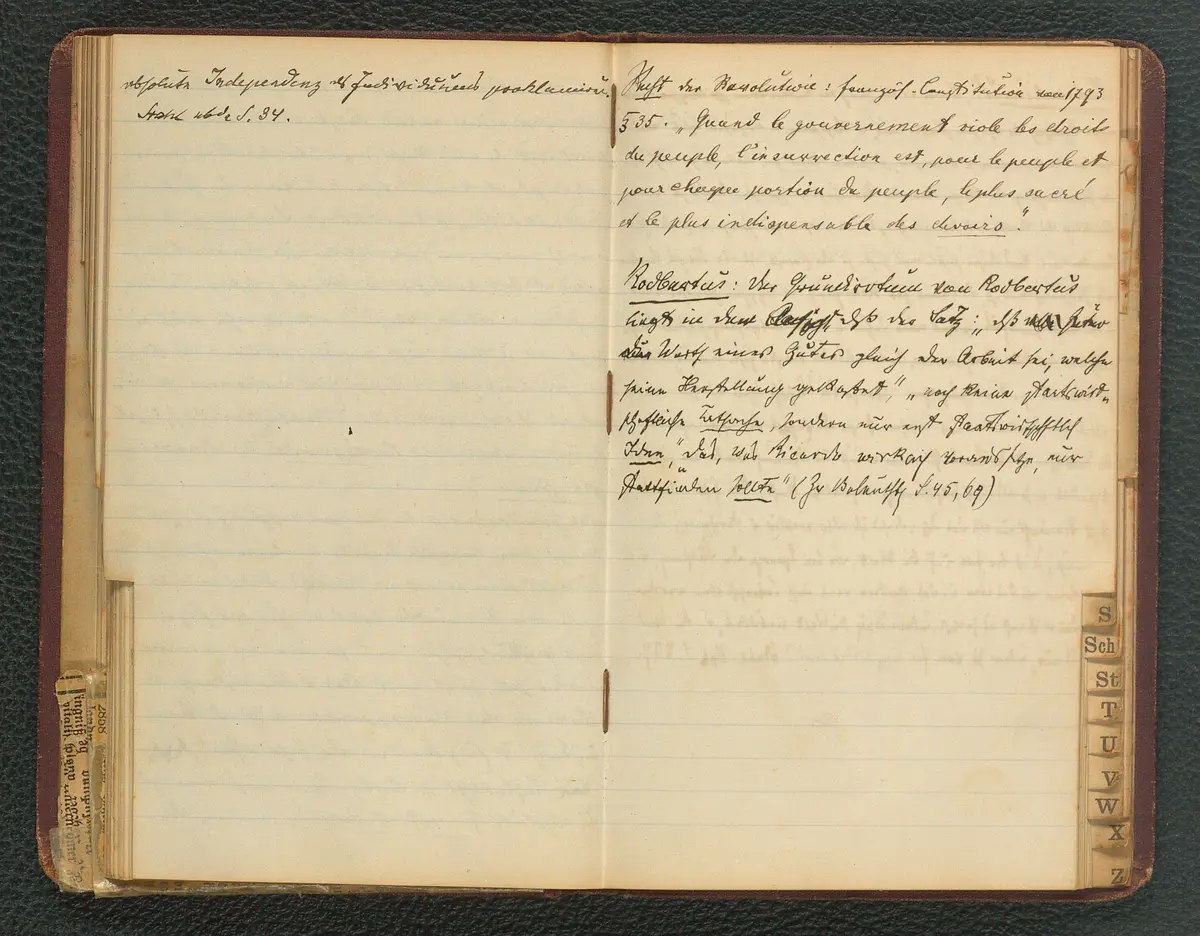 absolute Independenz des Individuums proklamieren.
Stahl ebda S. 34.
Recht der Revolution: französ. Constitution von 1793
§ 35. „Quand le gouvernement viole les droits
du peuple, l'insurrection est, pour le peuple et
pour chaque portion du peuple, le plus sacré
et le plus indispensable des devoirs".
Rodbertus: Der Grundirrtum von Rodbertus
liegt in dem daß der Satz: „daß der
Wert eines Gutes gleich der Arbeit sei, welche
seine Herstellung gekostet", „noch keine staatswirt-
schaftliche Tatsache, sondern nur erst staatswirtschftlich
Idee", „das, was Ricardo wirklich voraussetze, nur
stattfinden sollte" (Zr S. 45, 69)
S
Sch
St
T
U
V
W
X
Z